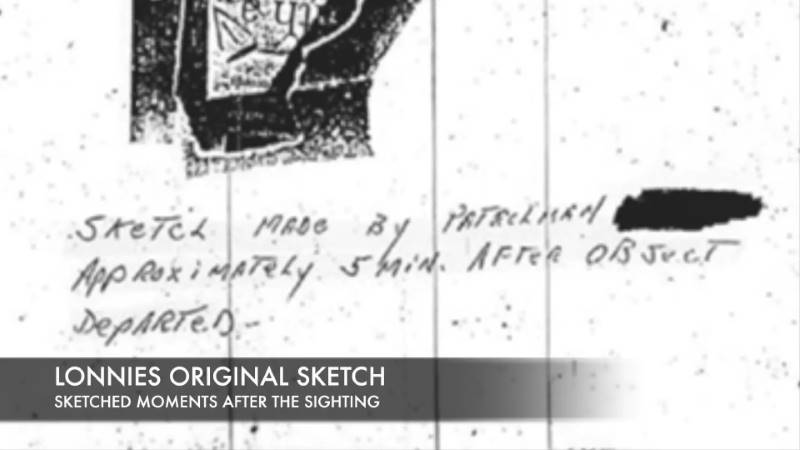 SKETCH MADE BY PATROLMAN
APPROXIMATELY 5 MIN. AFTER OBJECT
DEPARTED-
LONNIES ORIGINAL SKETCH
SKETCHED MOMENTS AFTER THE SIGHTING